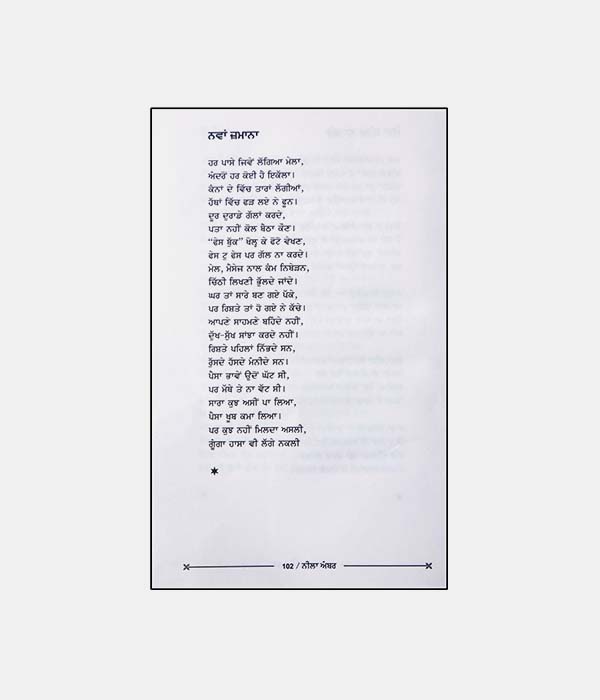 ਨਵਾਂ ਜ਼ਮਾਨਾ
ਹਰ ਪਾਸੇ ਜਿਵੇਂ ਲੱਗਿਆ ਮੇਲਾ,
ਅੰਦਰੋਂ ਹਰ ਕੋਈ ਹੈ ਇਕੱਲਾ।
ਕੰਨਾਂ ਦੇ ਵਿੱਚ ਤਾਰਾਂ ਲੱਗੀਆਂ,
ਹੱਥਾਂ ਵਿੱਚ ਫੜ ਲਏ ਨੇ ਫੂਨ।
ਦੂਰ ਦੁਰਾਡੇ ਗੱਲਾਂ ਕਰਦੇ,
ਪਤਾ ਨਹੀਂ ਕੋਲ ਬੈਠਾ ਕੌਣ।
“ਫੇਸ ਬੁੱਕ” ਖੋਲ੍ਹ ਕੇ ਫੋਟੋ ਵੇਖਣ,
ਫੇਸ ਟੂ ਫੇਸ ਪਰ ਗੱਲ ਨਾ ਕਰਦੇ।
ਮੇਲ, ਮੈਸੇਜ ਨਾਲ ਕੰਮ ਨਿਬੇੜਨ,
ਚਿੱਠੀ ਲਿਖਣੀ ਭੁੱਲਦੇ ਜਾਂਦੇ।
ਘਰ ਤਾਂ ਸਾਰੇ ਬਣ ਗਏ ਪੱਕੇ,
ਪਰ ਰਿਸ਼ਤੇ ਤਾਂ ਹੋ ਗਏ ਨੇ ਕੱਚੇ।
ਆਪਣੇ ਸਾਹਮਣੇ ਬਹਿੰਦੇ ਨਹੀਂ,
ਦੁੱਖ-ਸੁੱਖ ਸਾਂਝਾ ਕਰਦੇ ਨਹੀਂ।
ਰਿਸ਼ਤੇ ਪਹਿਲਾਂ ਨਿੱਭਦੇ ਸਨ,
ਰੁੱਸਦੇ ਹੱਸਦੇ ਮੰਨੀਦੇ ਸਨ।
ਪੈਸਾ ਭਾਵੇਂ ਉਦੋਂ ਘੱਟ ਸੀ,
ਪਰ ਮੱਥੇ ਤੇ ਨਾ ਵੱਟ ਸੀ।
ਸਾਰਾ ਕੁਝ ਅਸੀਂ ਪਾ ਲਿਆ,
ਪੈਸਾ ਖੂਬ ਕਮਾ ਲਿਆ।
ਪਰ ਕੁਝ ਨਹੀਂ ਮਿਲਦਾ ਅਸਲੀ,
ਗੂੰਗਾ ਹਾਸਾ ਵੀ ਲੱਗੇ ਨਕਲੀ
102 / ਨੀਲਾ ਅੰਬਰ